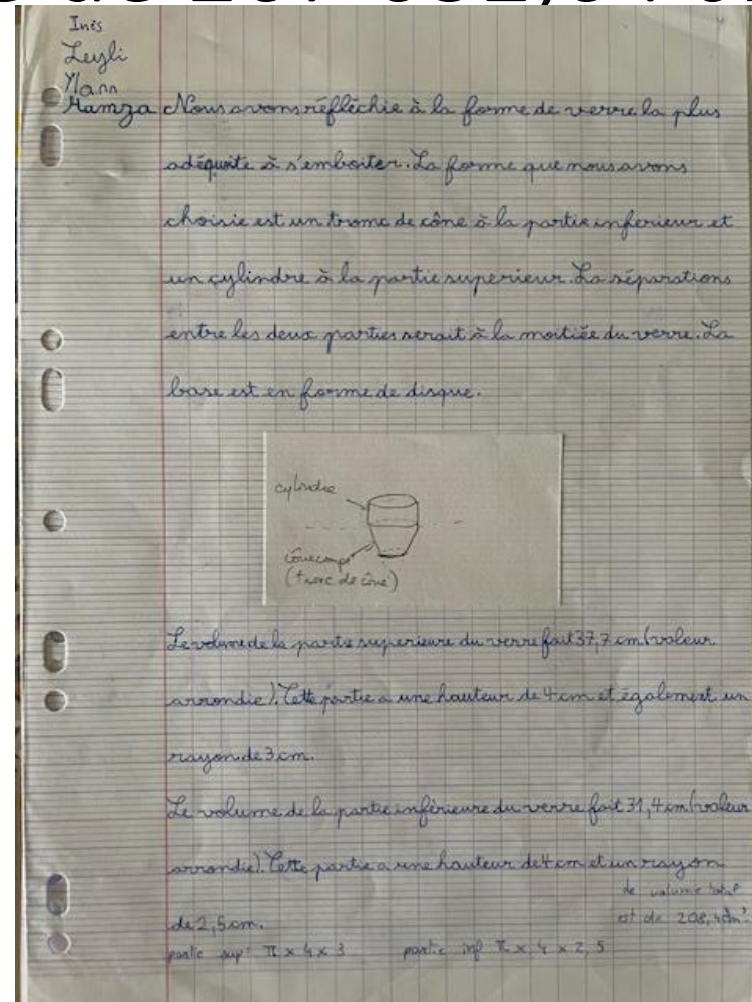 Inès
Leyli
Ylann
Hamza Nous avons réfléchie à la forme de verre la plus
adéquate à s'emboiter. La forme que nous avons
choisie est un tronc de cône à la partie inferieur et
un cylindre à la partie superieur. La séparations
entre les deux parties serait à la moitiée du verre. La
base est en forme de disque.
cylindre
cône coupé
(tronc de cône)
Le volume de la partie superieure du verre fait 37,7 cm (valeur
arrondie). Cette partie a une hauteur de 4 cm et également un
rayon de 3 cm.
Le volume de la partie inférieure du verre fait 31,4 cm (valeur
arrondie). Cette partie a une hauteur de 4 cm et un rayon
de 2,5 cm.
le volume total
est de 208,4 cm³
partie sup: π x 4 x 3 partie inf π x 4 x 2,5